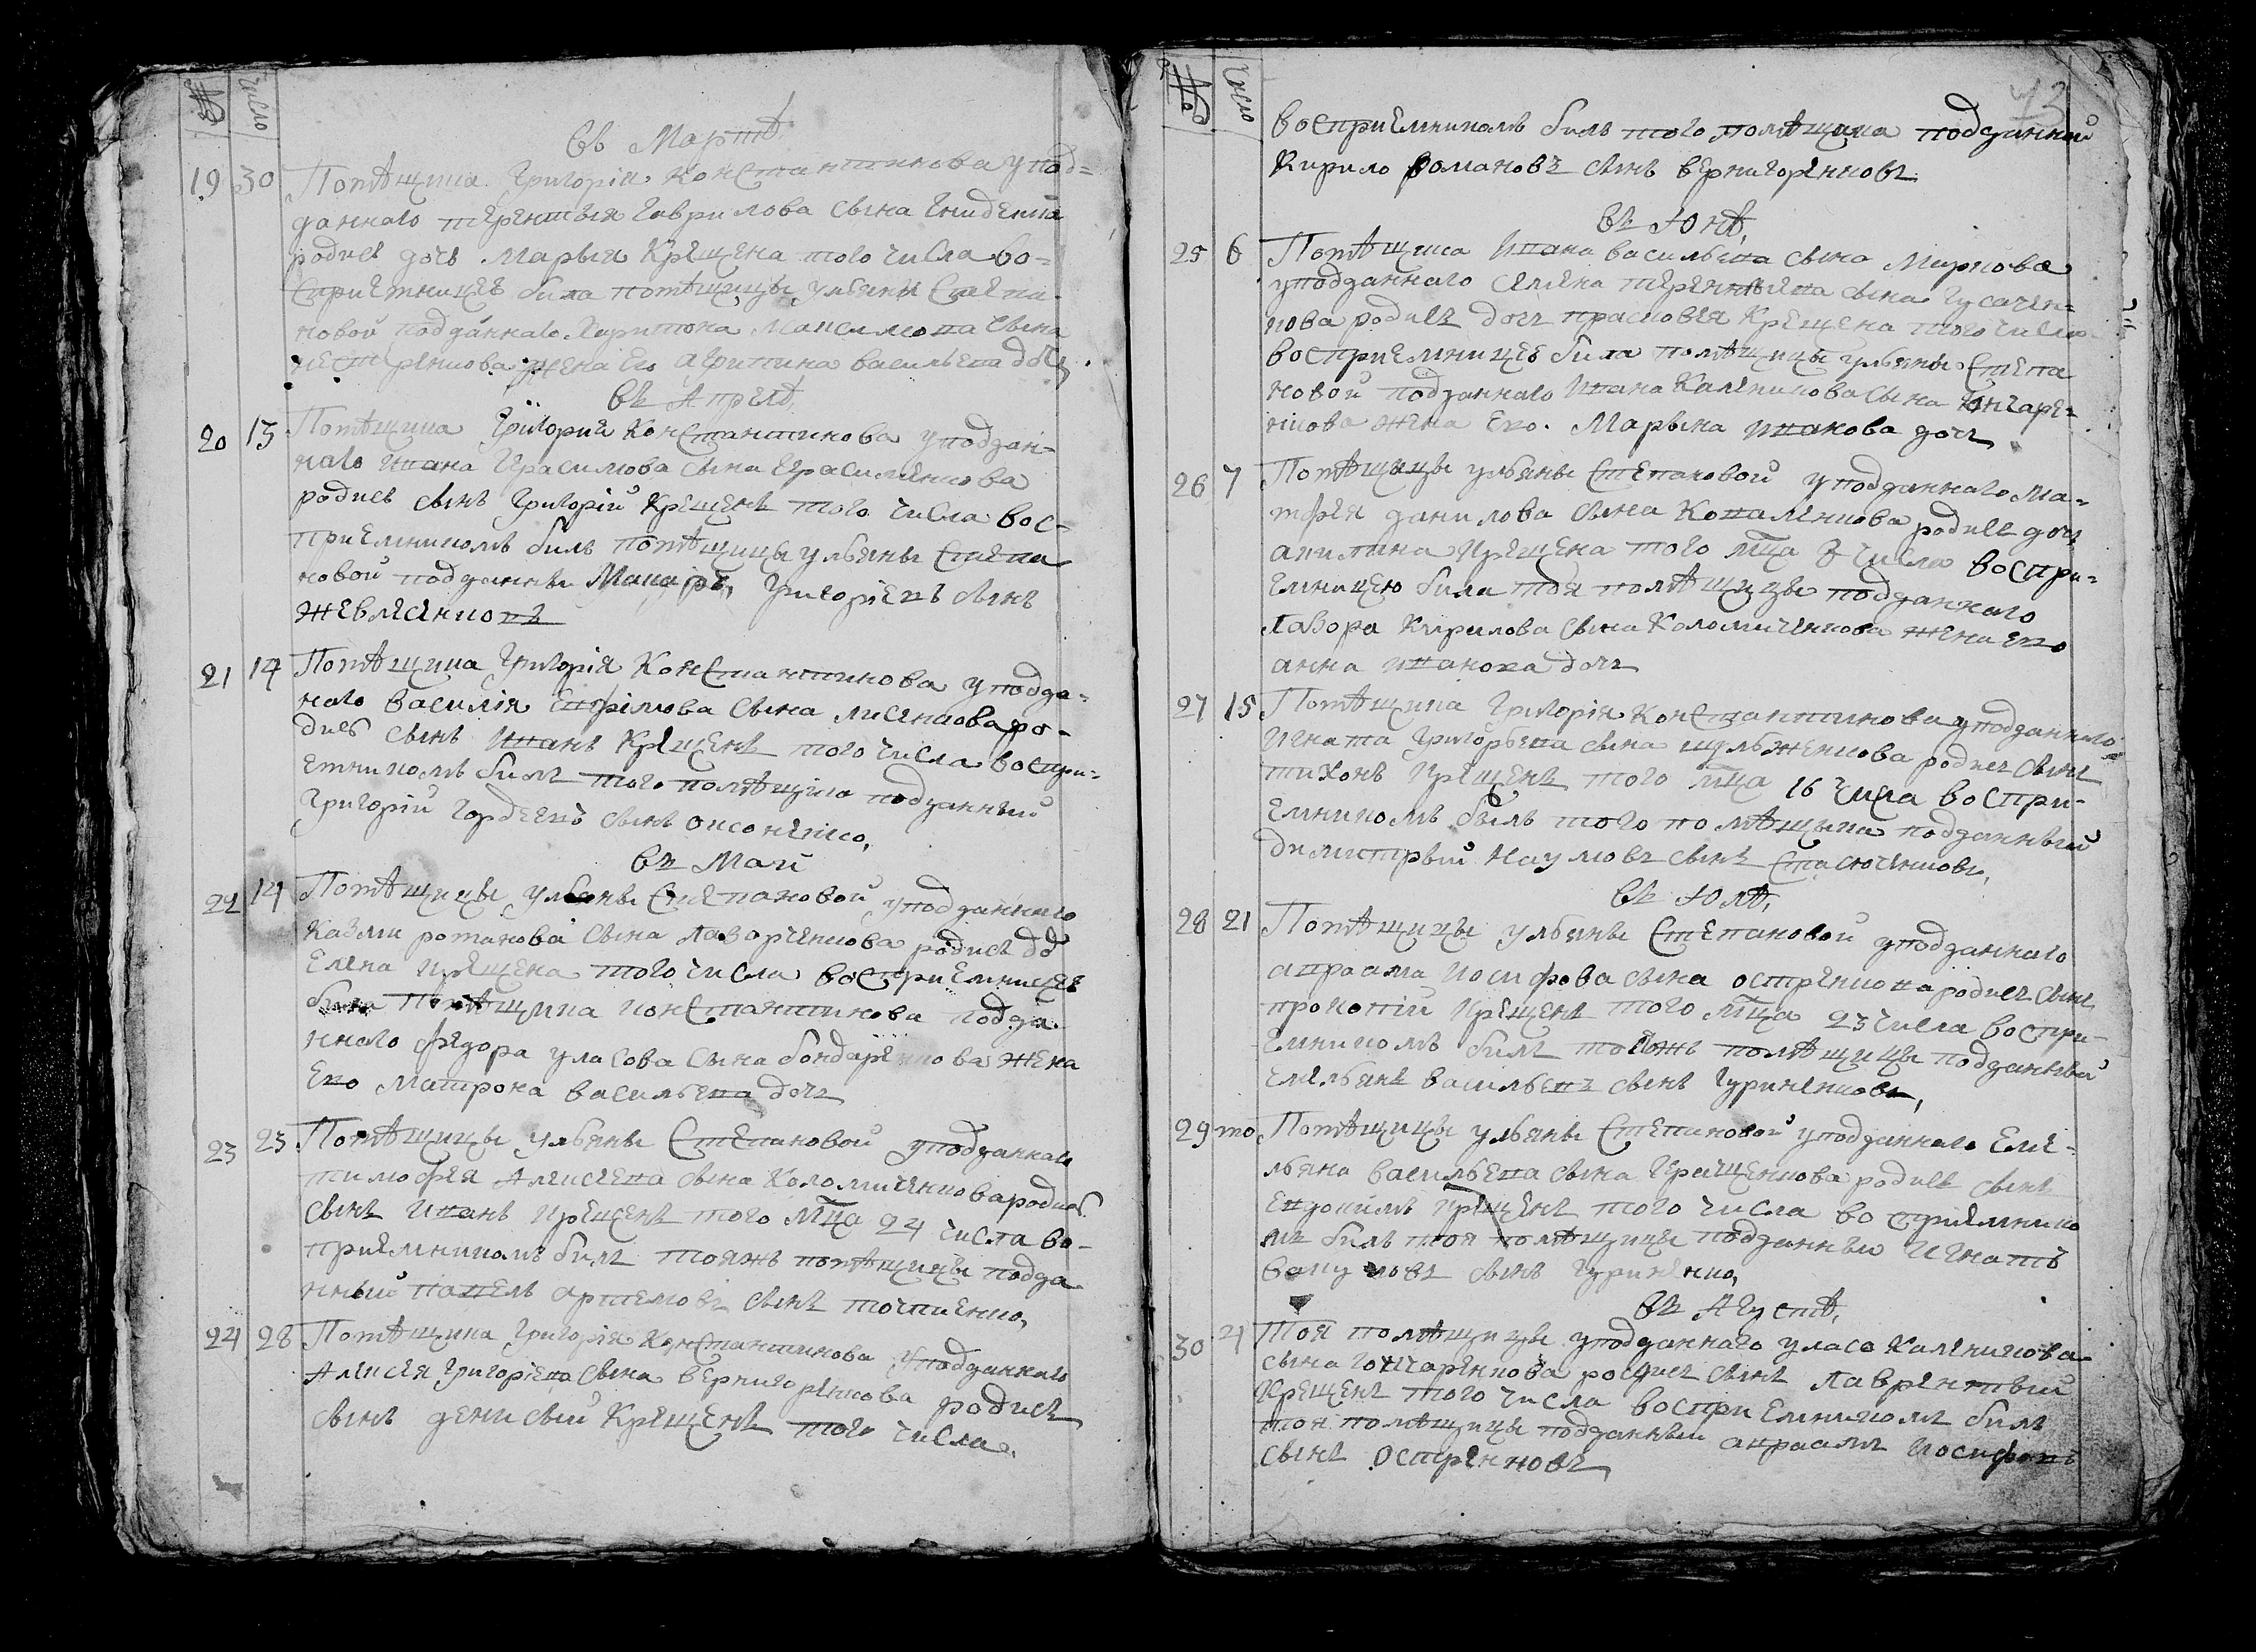 №
число
въ Мартѣ.
19 30 Помѣщика Григорія Константинова у под-
даннаго терентыя Гаврилова сына Гниденка
родися дочь Марыя Крещена того числа во-
сприемницею била помѣщицы ульяни Степа
новой подданнаго Харитона Максимова сына
нестеренкова жена Его агрипина васильева дочь
въ Апрелѣ,
20 13 Помѣщика Григория Константинова у поддан-
наго Ивана Герасимова сына Герасименкова
родися сынъ Григорій Крещенъ того числа вос-
приемникомъ билъ помѣщицы ульяны степа
новой подданны Макаръ, Григоріевъ сынъ
21 14 Помѣщика Григорія Константинова у подда-
наго василія Ефрімова сына лисенкова ро-
дися сынъ Иванъ Крещенъ того числа воспри-
емникомъ билъ того помѣщика подданный
Григорій Гордеевъ сынъ
въ Маи
22 14 Помѣщицы ульяны Степановой у подданнаго
Казми романова сына лазорченкова родися до
Елена Крещена того числа восприемницею
била Помѣщика Константинова подда
ннаго федора уласова сына бондаренкова жена
Его Матрона васильева дочь
23 23 Помѣщицы ульяны Степановой у подданнаго
тимофея Алексеева сына Коломиченкова родися
сынъ Иванъ Крещенъ того мца 24 числа во-
приемникомъ билъ тояжъ помѣщицы подда
нный павелъ артемовъ сынъ
24 28 Помѣщика Григорія Константинова у подданнаго
Алексея Григоріева сына вернигоренкова родися
сынъ денисый Крещенъ того числа,
№
число
43
восприемникомъ билъ того помѣщика подданный
Кирило романовъ сынъ вернигоренковъ
въ Юнѣ,
25 6 Помѣщика Ивана васильева сына Маркова
у подданнаго семена терентьева сына Гусачен-
кова родися дочь прасковея Крещена того числа
восприемницею била помѣщицы ульяны Степа
новой подданнаго Ивана Каленикова сына Гончаре-
нкова жена Его. Марына Иванова дочь
26 7 Помѣщицы ульяны Степановой у подданнаго Ма-
тфея данилова сына Коваленкова родися дочь
акилина Крещена того мца 8 числа воспри-
емницею била тоя помѣщицы подданнаго
лазора Кирилова сына Коломиченкова жена Его
анна Иванова дочь
27 15 Помѣщика Григорія Константинова у подданнаго
Игната Григорьева сына шульженкова родися сынъ
тихонъ Крещенъ того мца 16 числа воспри-
емникомъ былъ того помѣщыка подданный
димитрый Наумовъ сынъ стасюченковъ,
въ Юлѣ,
28 21 Помѣщицы ульяны Степановой у подданнаго
авраама Иосифова сына остренкова родися сынъ
прокопій Крещенъ того мца 23 числа воспри-
емникомъ билъ тояжъ помѣщицы подданный
Емельянъ васильевъ сынъ Гуриненковъ,
29 то, Помѣщицы ульяны Степановой у подданнаго Еме-
льяна васильева сына Грищенкова родися сынъ
Евдокимъ Крещенъ того числа восприемнико
мъ билъ тоя помѣщицы подданны Игнатъ
сынъ Гуриненко,
въ Августѣ,
30 4 Тоя помѣщицы у подданнаго уласа Каленикова
сына Гончаренкова родися сынъ лаврентый
Крещенъ того числа восприемникомъ билъ
тоя помѣщицы подданный авраамъ Иосифовъ
сынъ остренковъ,